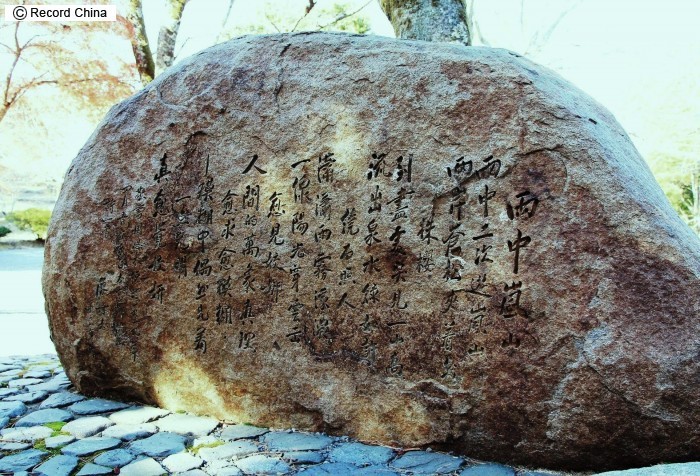 © Record China
雨中嵐山
雨中二次遊嵐山
兩岸蒼松夾着幾
株櫻
到盡處突見一山高
流出泉水綠如許
繞石照人
瀟瀟雨霧濛濃
一線陽光穿雲出
愈見姣妍
人間的萬象真理
愈求愈模糊
—模糊中偶然見着
一點光明
真愈覺姣妍